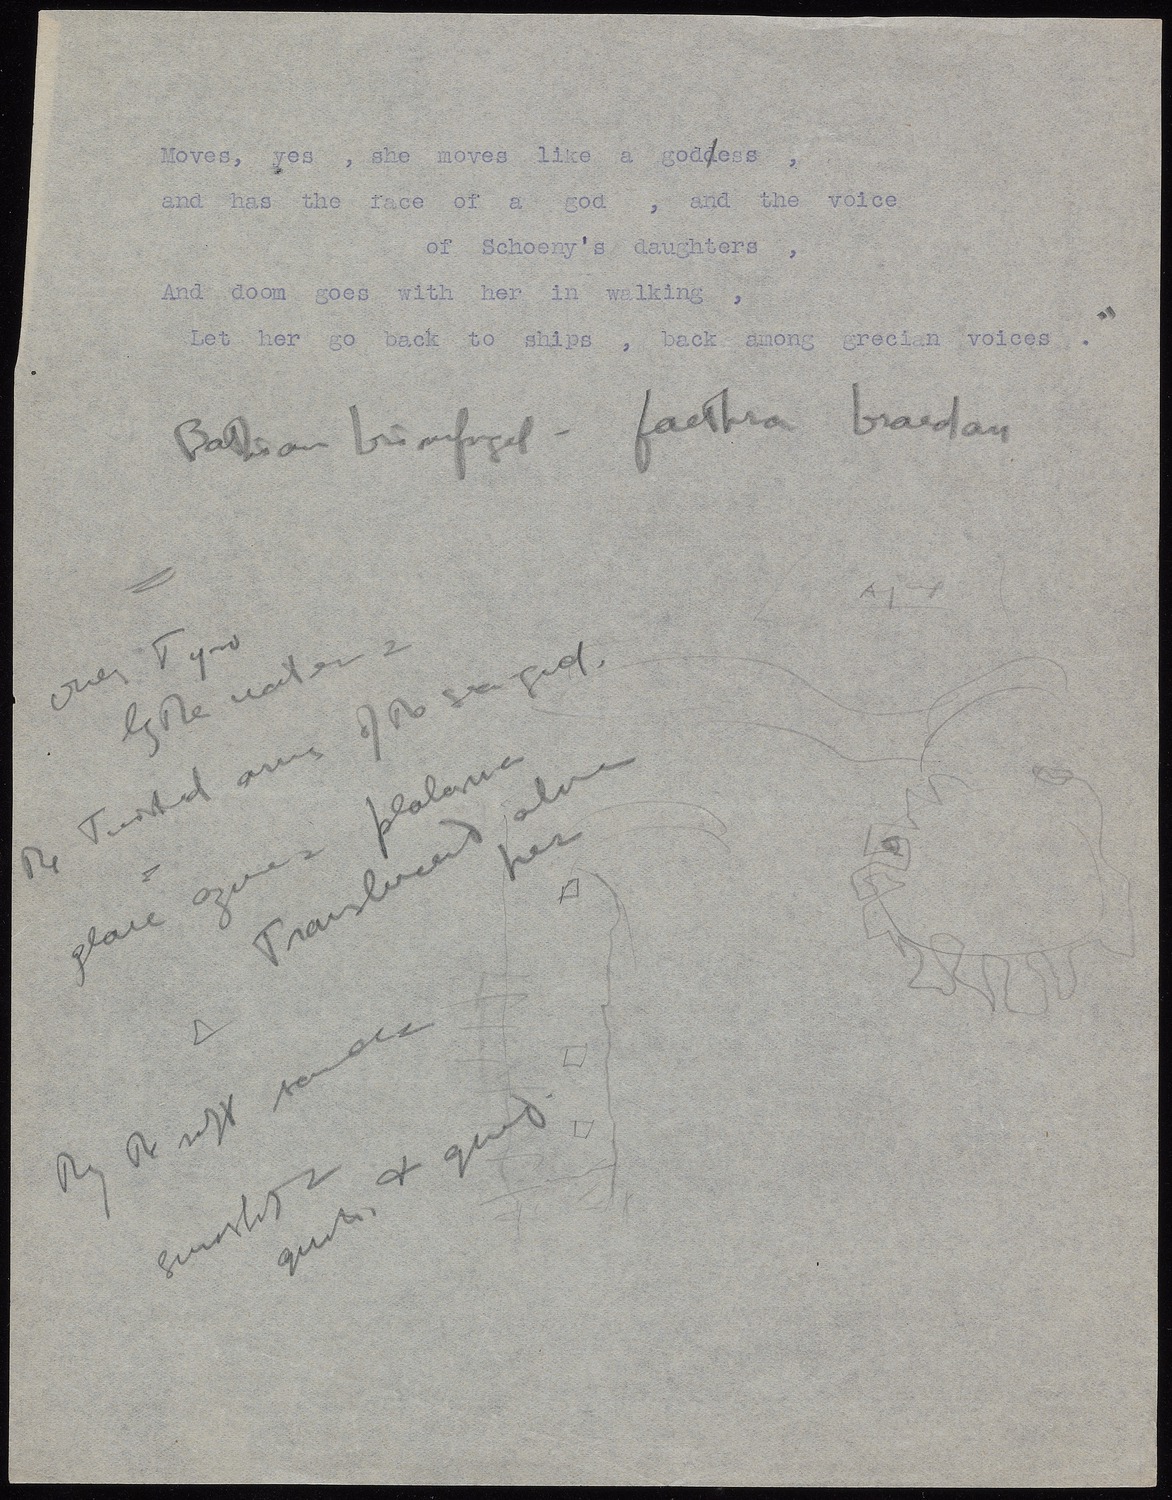 Moves, yes , she moves like a goddess ,
and has the face of a god , and the voice
of Schoeny's daughters ,
And doom goes with her in walking ,
Let her go back to ships , back among grecian voices ."
Bathian brimfugel - faethra braedan
over Tyro
by the waters
The Twisted arms of the sea god.
glare azure
Translucent above
her
By the soft sands
&